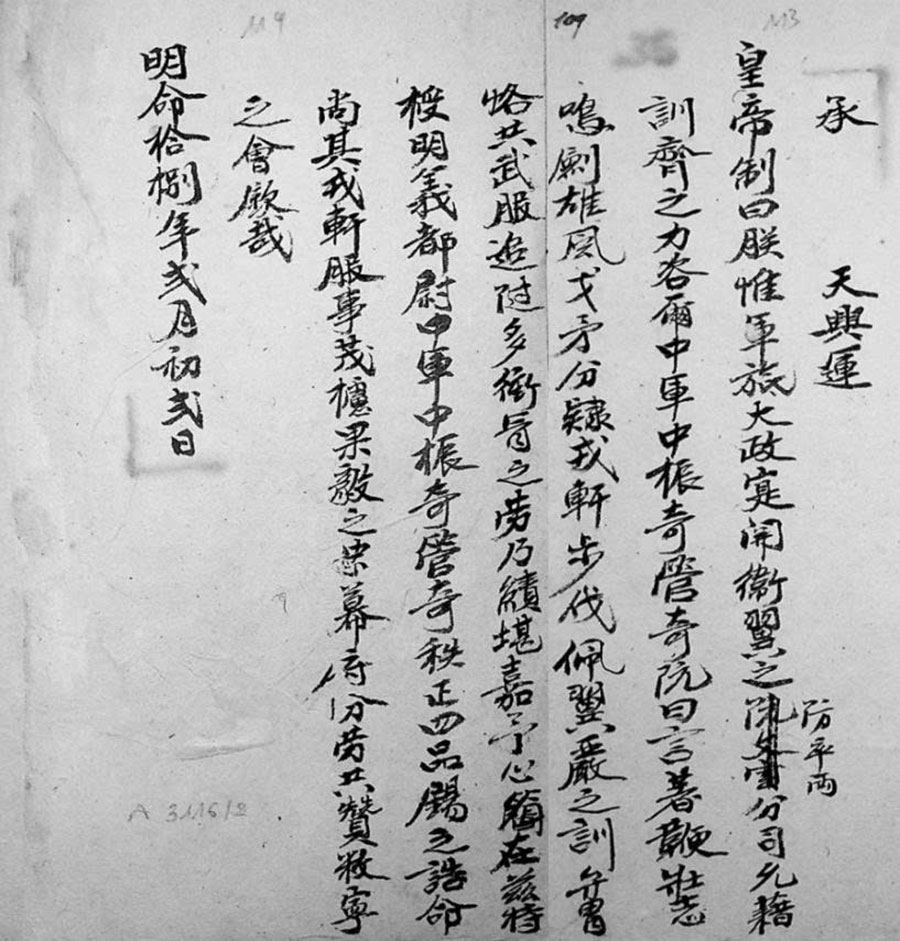 承 天興運
皇帝制曰朕惟軍旅大政寔開衛翼之分司允藉
訓齊之力咨爾中軍中振奇管奇阮曰言著鞭壯志
鳴劍雄風戈矛分隸戎軒步伐佩翼嚴之訓弁冑
恪共武服追陪多衛胥之勞乃績堪嘉予心簡在茲特
授明義都尉中軍中振奇管奇秩正四品錫之誥命
尚其戎軒服事茂攄果毅之忠幕府分勞共贊敉寧
之會欽哉
明命拾捌年弍月初弍日
113
109